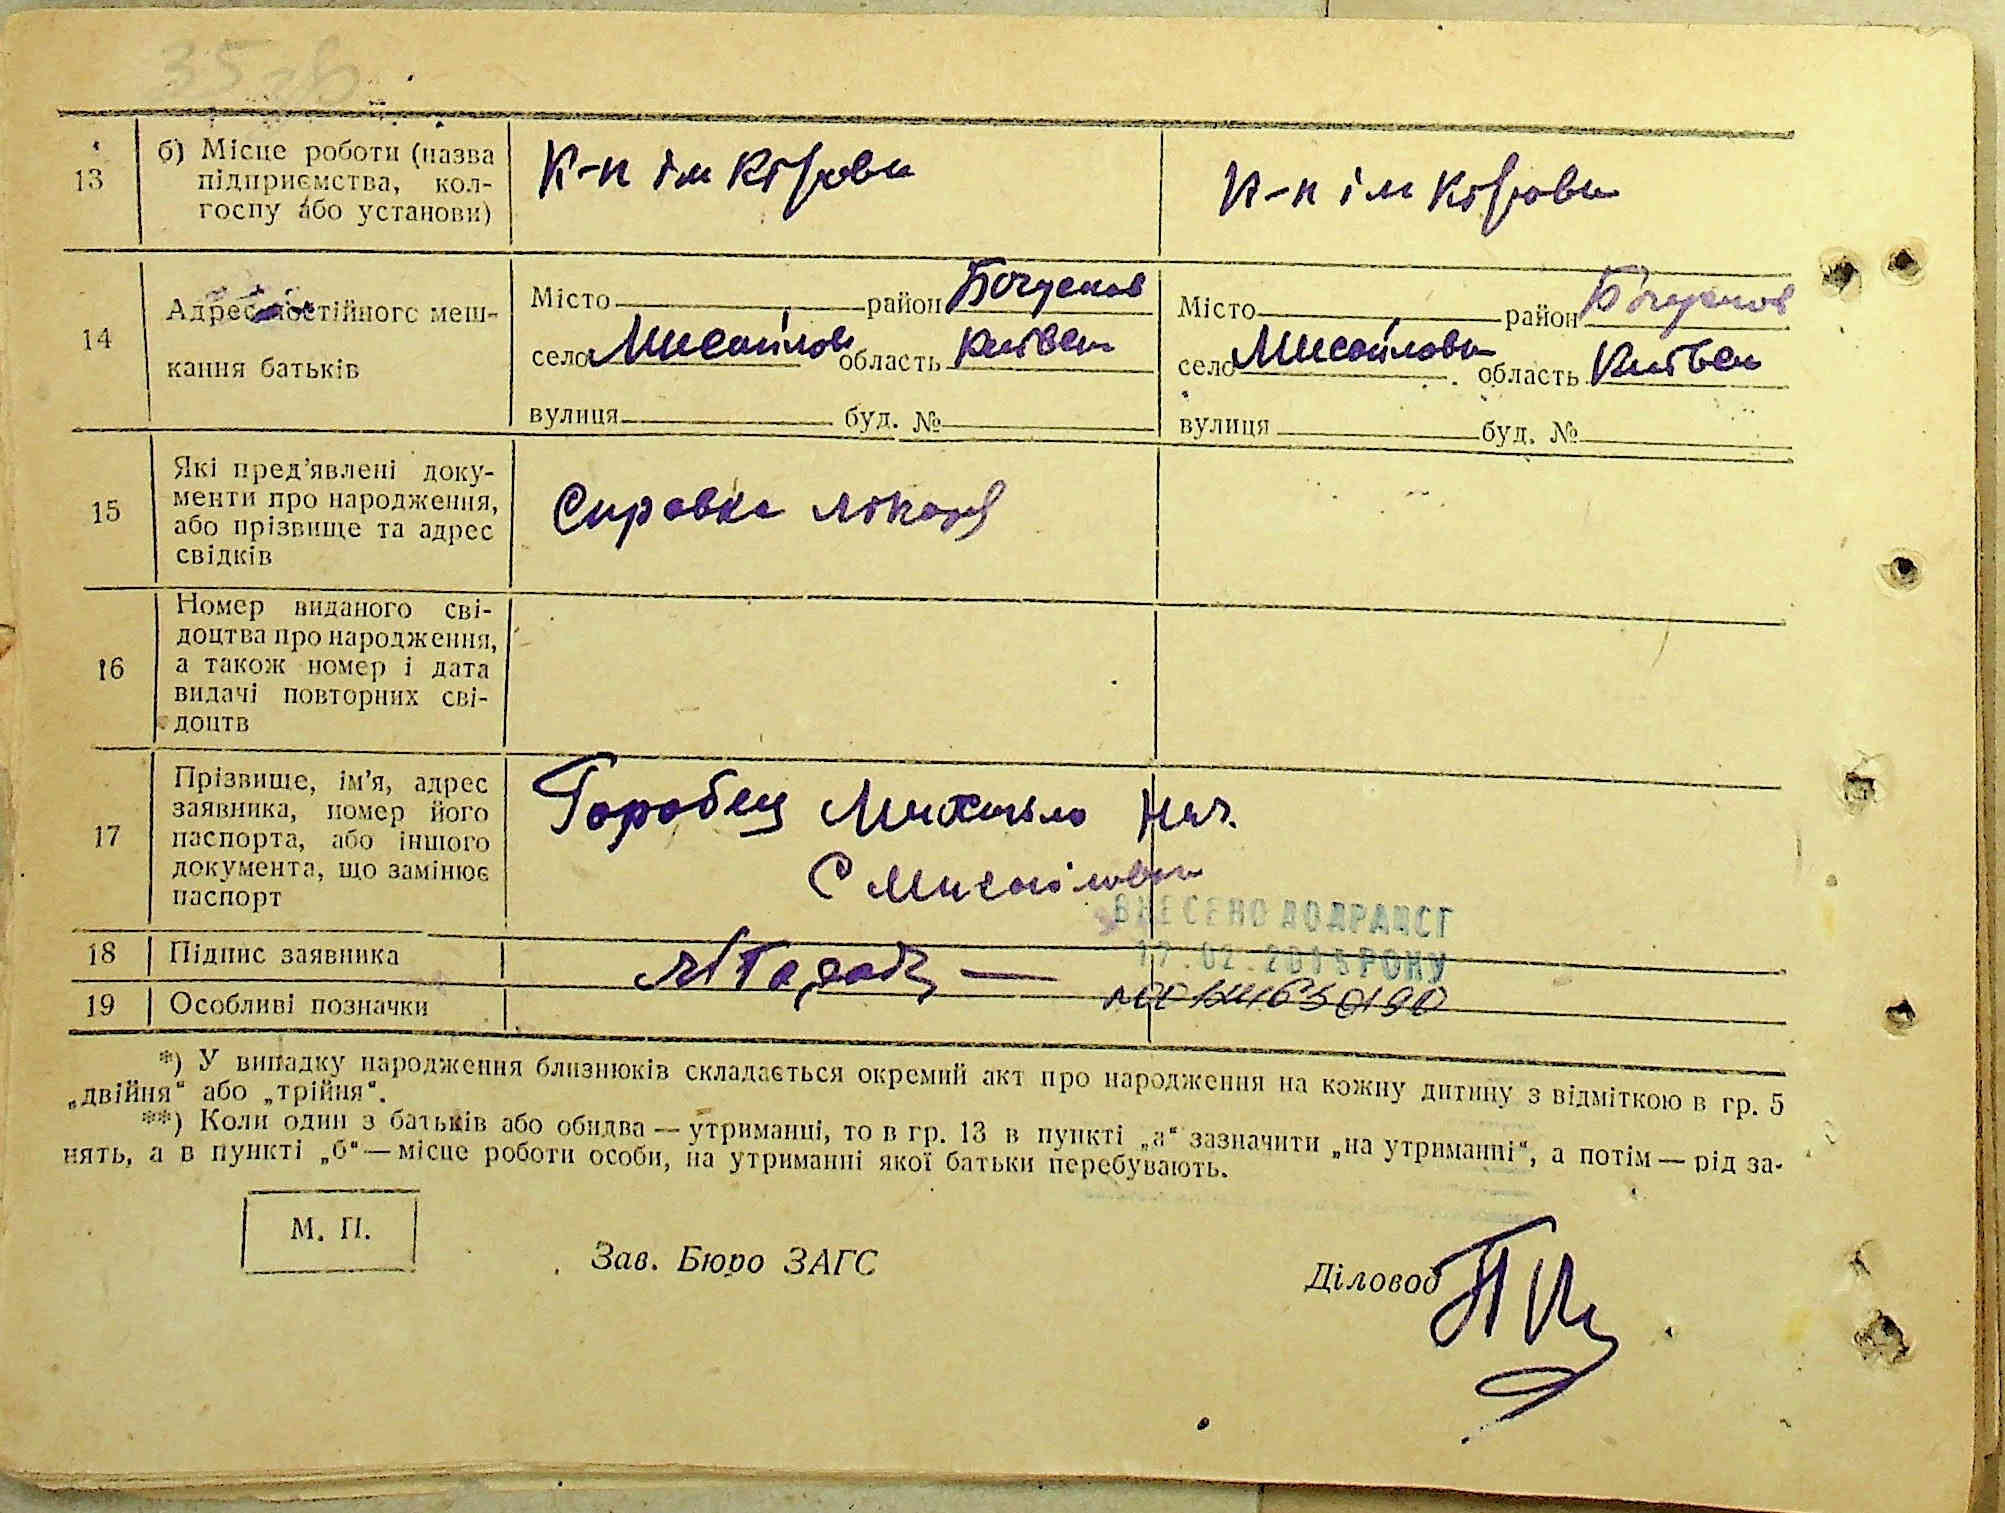 13 б) Місце роботи (назва
підприємства, кол-
госпу або установи)
К-п ім Кірова
К-п ім Кірова
14 Адрес постійного меш-
кання батьків
Місто район Богуслав
село Мисайлов область Київск
вулиця буд. №
Місто район Богуслав
село Мисайловк область Київск
вулиця буд. №
15 Які пред'явлені доку-
менти про народження,
або прізвище та адрес
свідків
Справка лікаря
16 Номер виданого сві-
доцтва про народження,
а також номер і дата
видачі повторних сві-
доцтв
17 Прізвище, ім'я, адрес
заявника, номер його
паспорта, або іншого
документа, що замінює
паспорт
Горобец Михайло
С Мисайловка
ВНЕСЕНО ДО ДРАЦСГ
17.02.2015 РОКУ
18 Підпис заявника
19 Особливі позначки
*) У випадку народження близнюків складається окремий акт про народження на кожну дитину з відміткою в гр. 5
„двійня“ або „трійня“.
**) Коли один з батьків або обидва — утриманці, то в гр. 13 в пункті „а“ зазначити „на утриманні“, а потім — рід за-
нять, а в пункті „б“ — місце роботи особи, на утриманні якої батьки перебувають.
М. П.
Зав. Бюро ЗАГС
Діловод